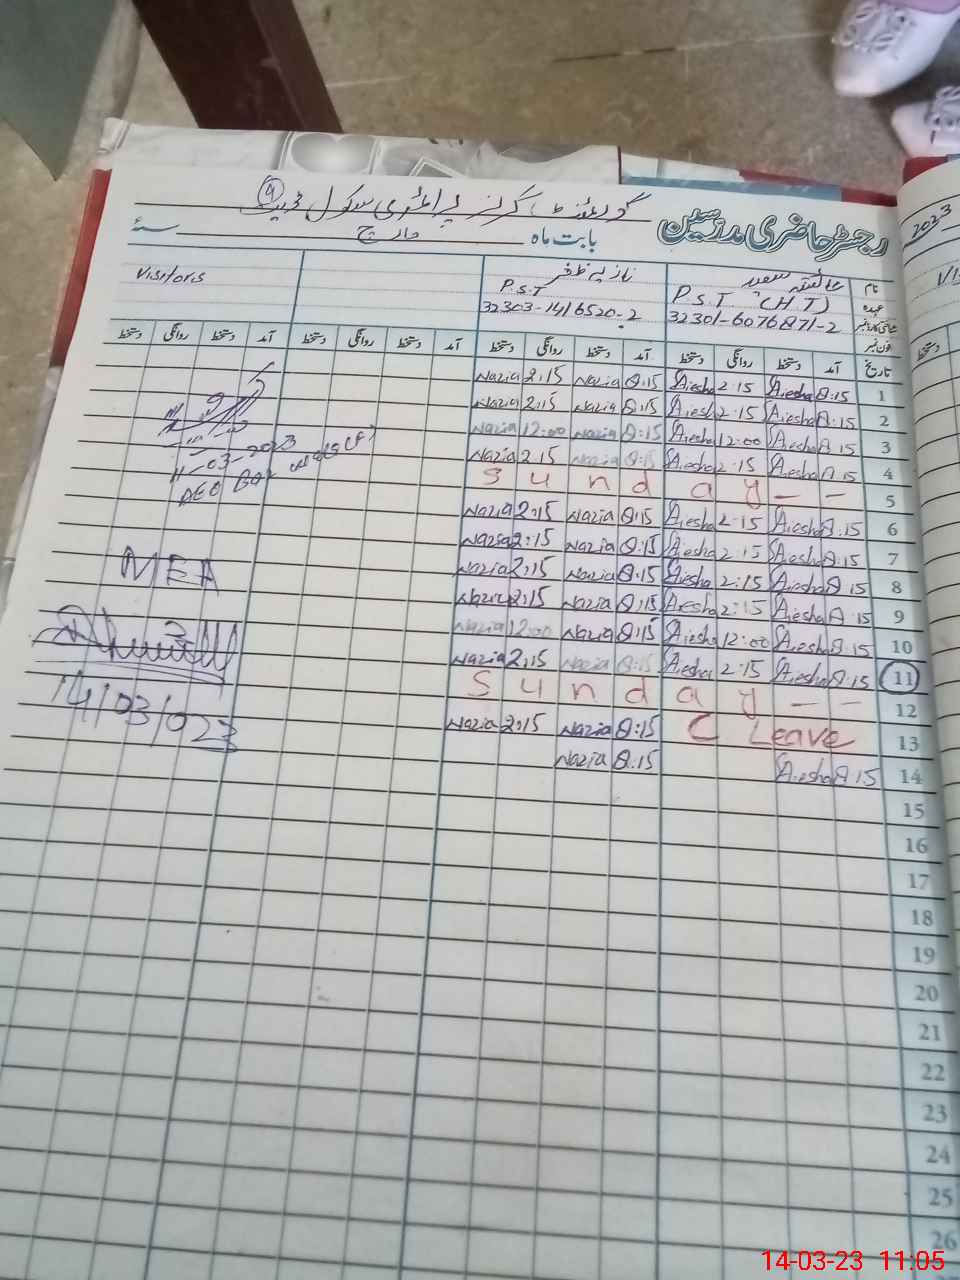 گورنمنٹ گرلز پرائمری سکول
رجسٹر حاضری مدرسین
بابت ماہ مارچ سنۂ
2023
نام عائشہ سعید نازیہ ظفر Visitoris
عہدہ P.S.T (H.T) P.S.T
شناختی کارڈ نمبر 32301-6076871-2 32303-1416520-2
فون نمبر
تاریخ آمد دستخط روانگی دستخط آمد دستخط روانگی دستخط آمد دستخط روانگی دستخط آمد دستخط روانگی دستخط
1 8:15 Aiesha 2:15 Aiesha 8:15 Nazia 2:15 Nazia
2 8:15 Aiesha 2:15 Aiesha 8:15 Nazia 2:15 Nazia
3 8:15 Aiesha 12:00 Aiesha 8:15 Nazia 12:00 Nazia
4 8:15 Aiesha 2:15 Aiesha 8:15 Nazia 2:15 Nazia
5 Sunday - -
6 8:15 Aiesha 2:15 Aiesha 8:15 Nazia 2:15 Nazia
7 8:15 Aiesha 2:15 Aiesha 8:15 Nazia 2:15 Nazia
8 8:15 Aiesha 2:15 Aiesha 8:15 Nazia 2:15 Nazia
9 8:15 Aiesha 2:15 Aiesha 8:15 Nazia 2:15 Nazia
10 8:15 Aiesha 12:00 Aiesha 8:15 Nazia 12:00 Nazia
11 8:15 Aiesha 2:15 Aiesha 8:15 Nazia 2:15 Nazia
12 Sunday - -
13 C Leave 8:15 Nazia 2:15 Nazia
14 8:15 Aiesha 8:15 Nazia
15
16
17
18
19
20
21
22
23
24
25
26
11-03-2023
DEO
MEA
14/03/023
14-03-23 11:05